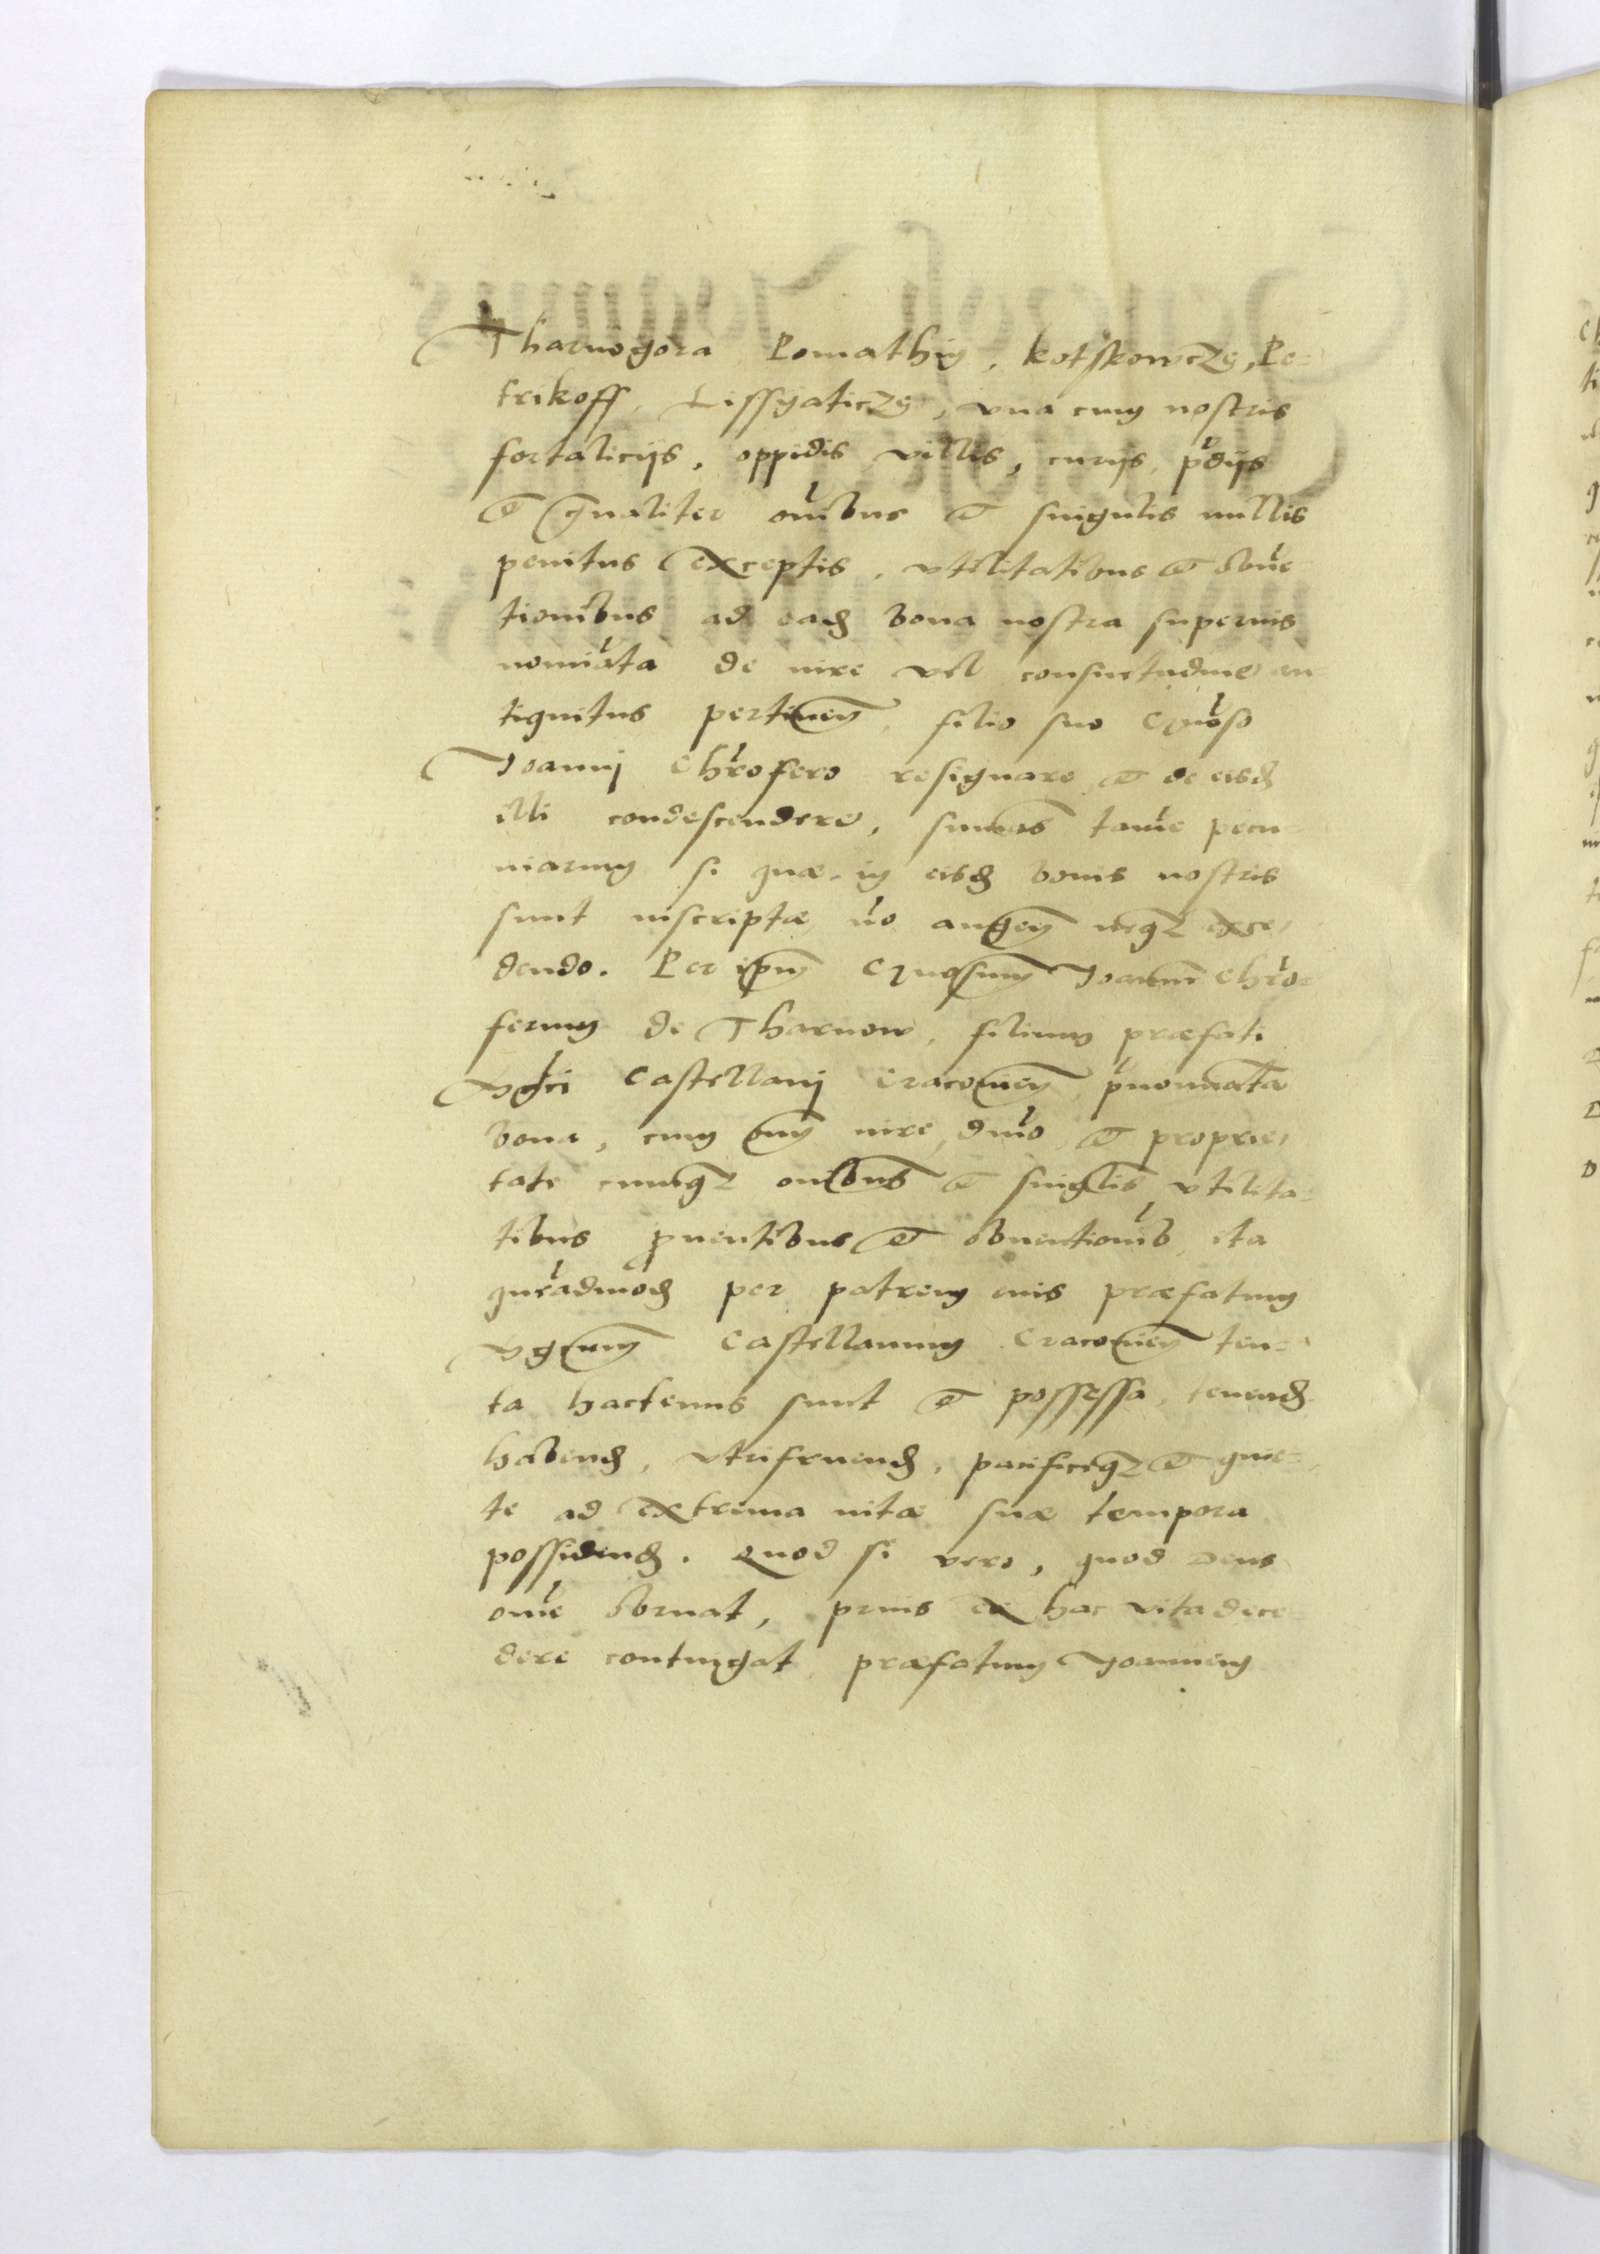 Tharnogora Lomathin, Kotskowcze, Pe-
trikoff, Lissyaticze, vna cum nostris
fortalicijs, oppidis villis, curijs, p̃dijs
et gñaliter om̃ibus et singulis nullis
penitus exceptis, vtilitatibus et obue-
tionibus ad eadem bona nostra superius
nomiãta de iure vel consuetudine an-
tiquitus pertineñ, filio suo Gñoso
Joanni Chr̃ofero resignare et de eisdem
illi condescendere, sum̃as tam̃e pecu-
niarum si quæ in eisdem bonis nostris
sunt inscriptæ nõ augeñ neque exce-
dendo. Per ip̃m Gñosum Joannem Chr̃o-
ferum de Tharnow, filium præfati
Mg̃ci Castellani Cracouieñ p̃nominata
bona, cum om̃i iure, dñio, et proprie-
tate cumque om̃ibus et singlis vtilita-
tibus prouentibus et obuentionib̃, ita
quẽadmodum per patrem eius præfatum
Mgcum Castellanum Cracouieñ ten-
ta hactenus sunt et possessa, tenend
habend, vtrifruend, pacificeque et quie-
te ad extrema uitæ suæ tempora
possidend. Quod si vero, quod Deus
om̃e obruat, prius ex hac vita dece-
dere contingat præfatum Joannem